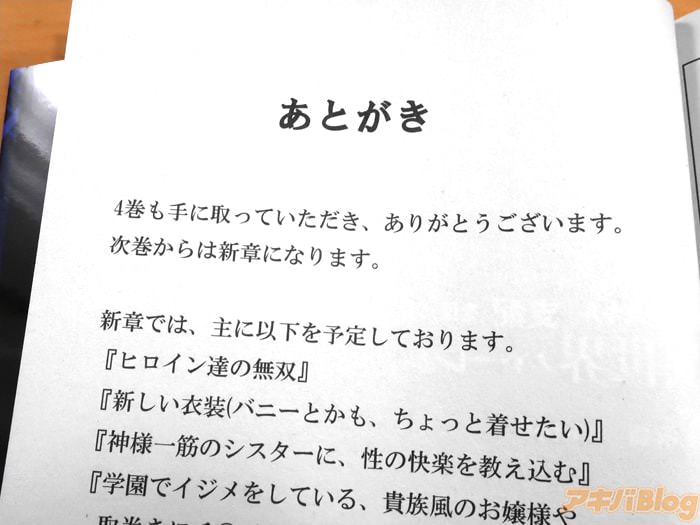 あとがき
4巻も手に取っていただき、ありがとうございます。
次巻からは新章になります。
新章では、主に以下を予定しております。
『ヒロイン達の無双』
『新しい衣装(バニーとかも、ちょっと着せたい)』
『神様一筋のシスターに、性の快楽を教え込む』
『学園でイジメをしている、貴族風のお嬢様や
アキバBlog